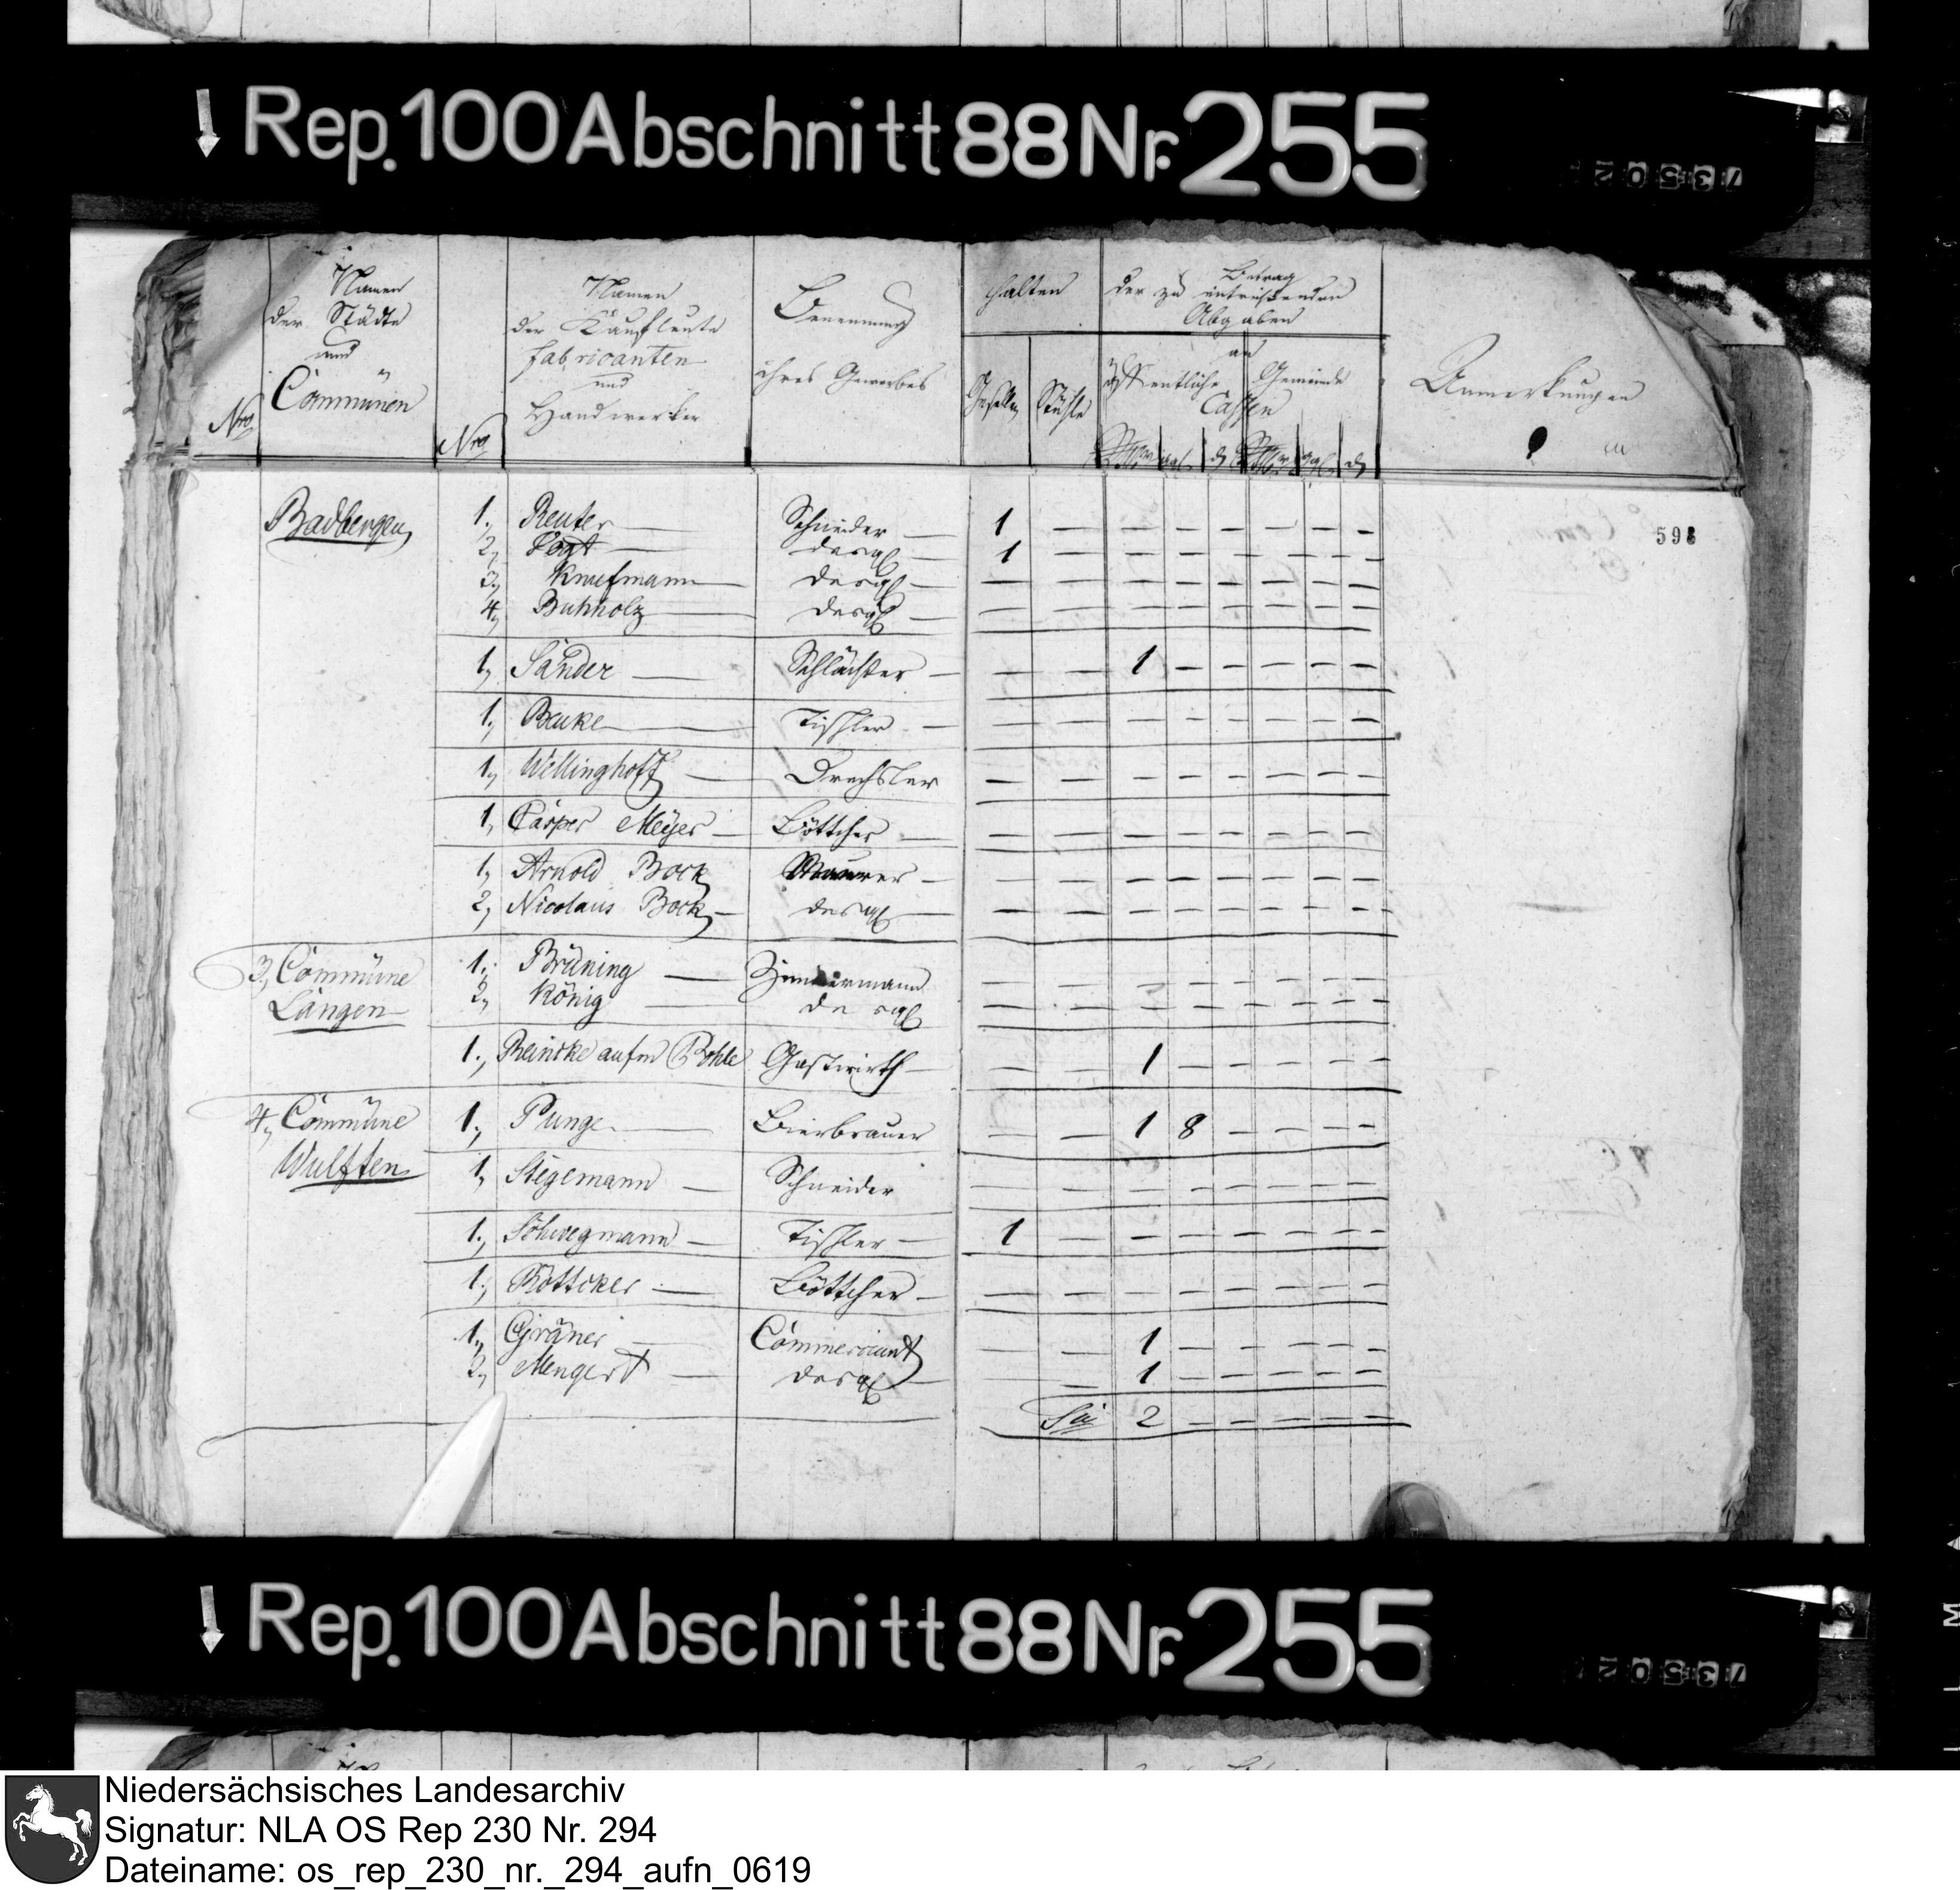 Rep. 100 Abschnitt 88 Nr. 255
73502
Nro
Namen
der Städte
und
Communen
Nro
Namen
der Kaufleute
fabricanten
und
Handwerker
Benennung
ihres Gewerbes
halten
Gesellen
Stühle
Betrag
der zu entrichtenden
Abgaben
an
öffentliche Gemeinde
Cassen
Anmerkungen
593
Badbergen 1., Reuter — Schneider — 1 — — — — — — —
2, Vogt — desgl — 1 — — — — — — —
3, Knefmann — desgl — — — — — — — —
4, Buhholz — desgl — — — — — — — —
1, Sander — Schlächter — — — 1 — — — — —
1, Beuke — Tischler — — — — — — — — —
1, Wellinghoff — Drechsler — — — — — — — —
1, Casper Meyer — Böttcher — — — — — — — — —
1, Arnold Bock Maurer — — — — — — — — —
2, Nicolaus Bock — desgl — — — — — — — — —
3, Commune 1., Brüning — Zimmermann — — — — — — — —
Langen 2, König — desgl — — — — — — — —
1., Reincke aufm Bohle Gastwirth — — — 1 — — — — —
4, Commune 1., Punge — Bierbrauer — — 1 8 — — — —
Wulften 1, Stegemann — Schneider — — — — — — — —
1., Schwegmann — Tischler — 1 — — — — — — —
1., Böttcher — Böttcher — — — — — — — — —
1., Gräner — Commerciant — — 1 — — — — —
2., Mengert — desgl — — — 1 — — — — —
Sa 2 — — — — —
Rep. 100 Abschnitt 88 Nr. 255
73502
Niedersächsisches Landesarchiv
Signatur: NLA OS Rep 230 Nr. 294
Dateiname: os_rep_230_nr._294_aufn_0619